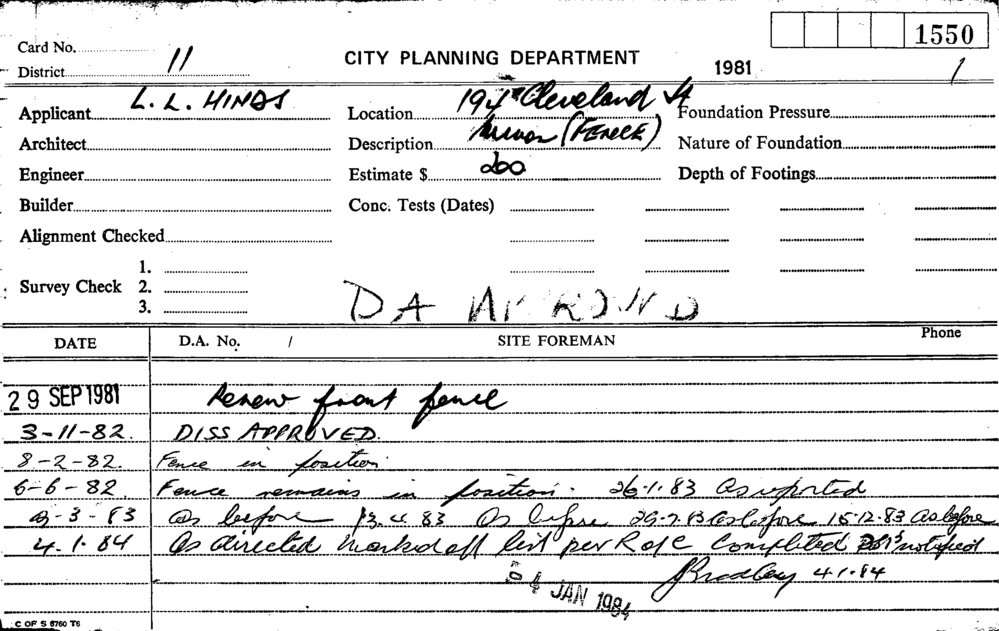 1550
Card No.
District 11
CITY PLANNING DEPARTMENT
1981 1
Applicant L. L. HINDS
Location 194 Cleveland St
Foundation Pressure
Architect
Description Minor (FENCE)
Nature of Foundation
Engineer
Estimate $ 200
Depth of Footings
Builder
Conc. Tests (Dates)
Alignment Checked
Survey Check 1.
2.
3.
DA
DATE D.A. No. / SITE FOREMAN Phone
29 SEP 1981 Renew front fence
3-11-82. DISSAPPROVED.
8-2-82. Fence in position
6-6-82 Fence remains in position. 26.1.83 As reported
-3-83 As before 13.4.83 As before 26.7.83 As before 15.12.83 As before
4.1.84 As directed marked off list per R of C Completed notified
Bradley 4.1.84
04 JAN 1984
C OF S 6760 T6